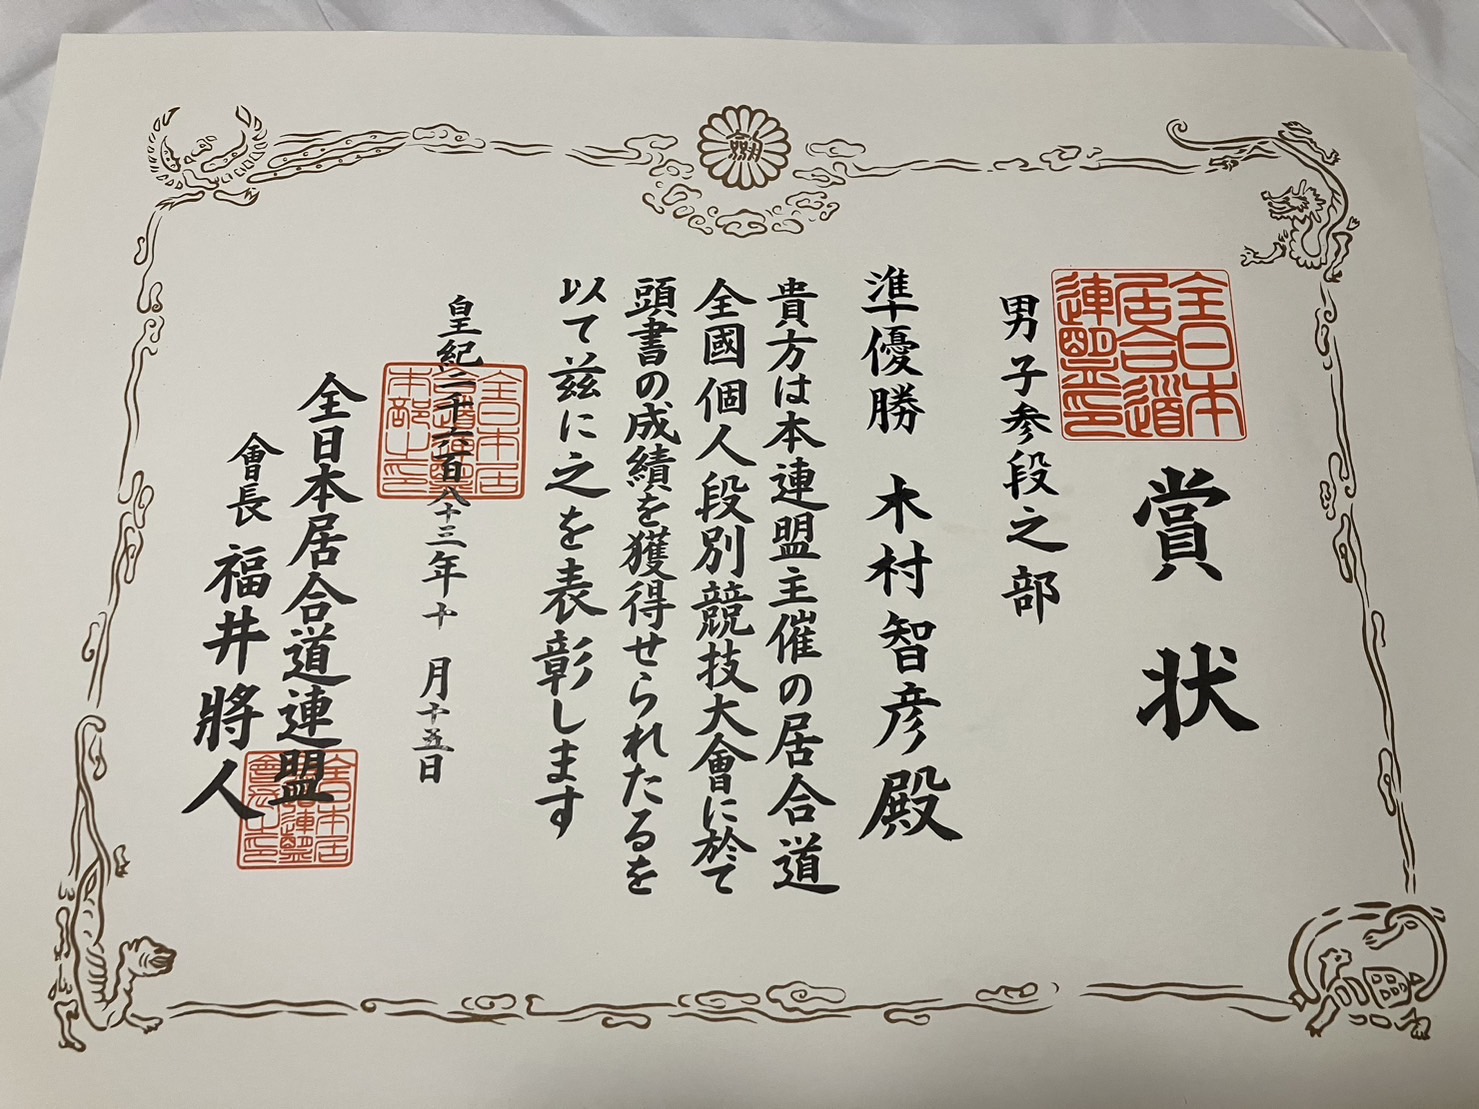 賞状
全日本
居合道
連盟印
男子参段之部
準優勝 木村智彦殿
貴方は本連盟主催の居合道
全國個人段別競技大會に於て
頭書の成績を獲得せられたるを
以て茲に之を表彰します
皇紀二千六百八十三年十月十五日
全日本居合道連盟
會長 福井將人